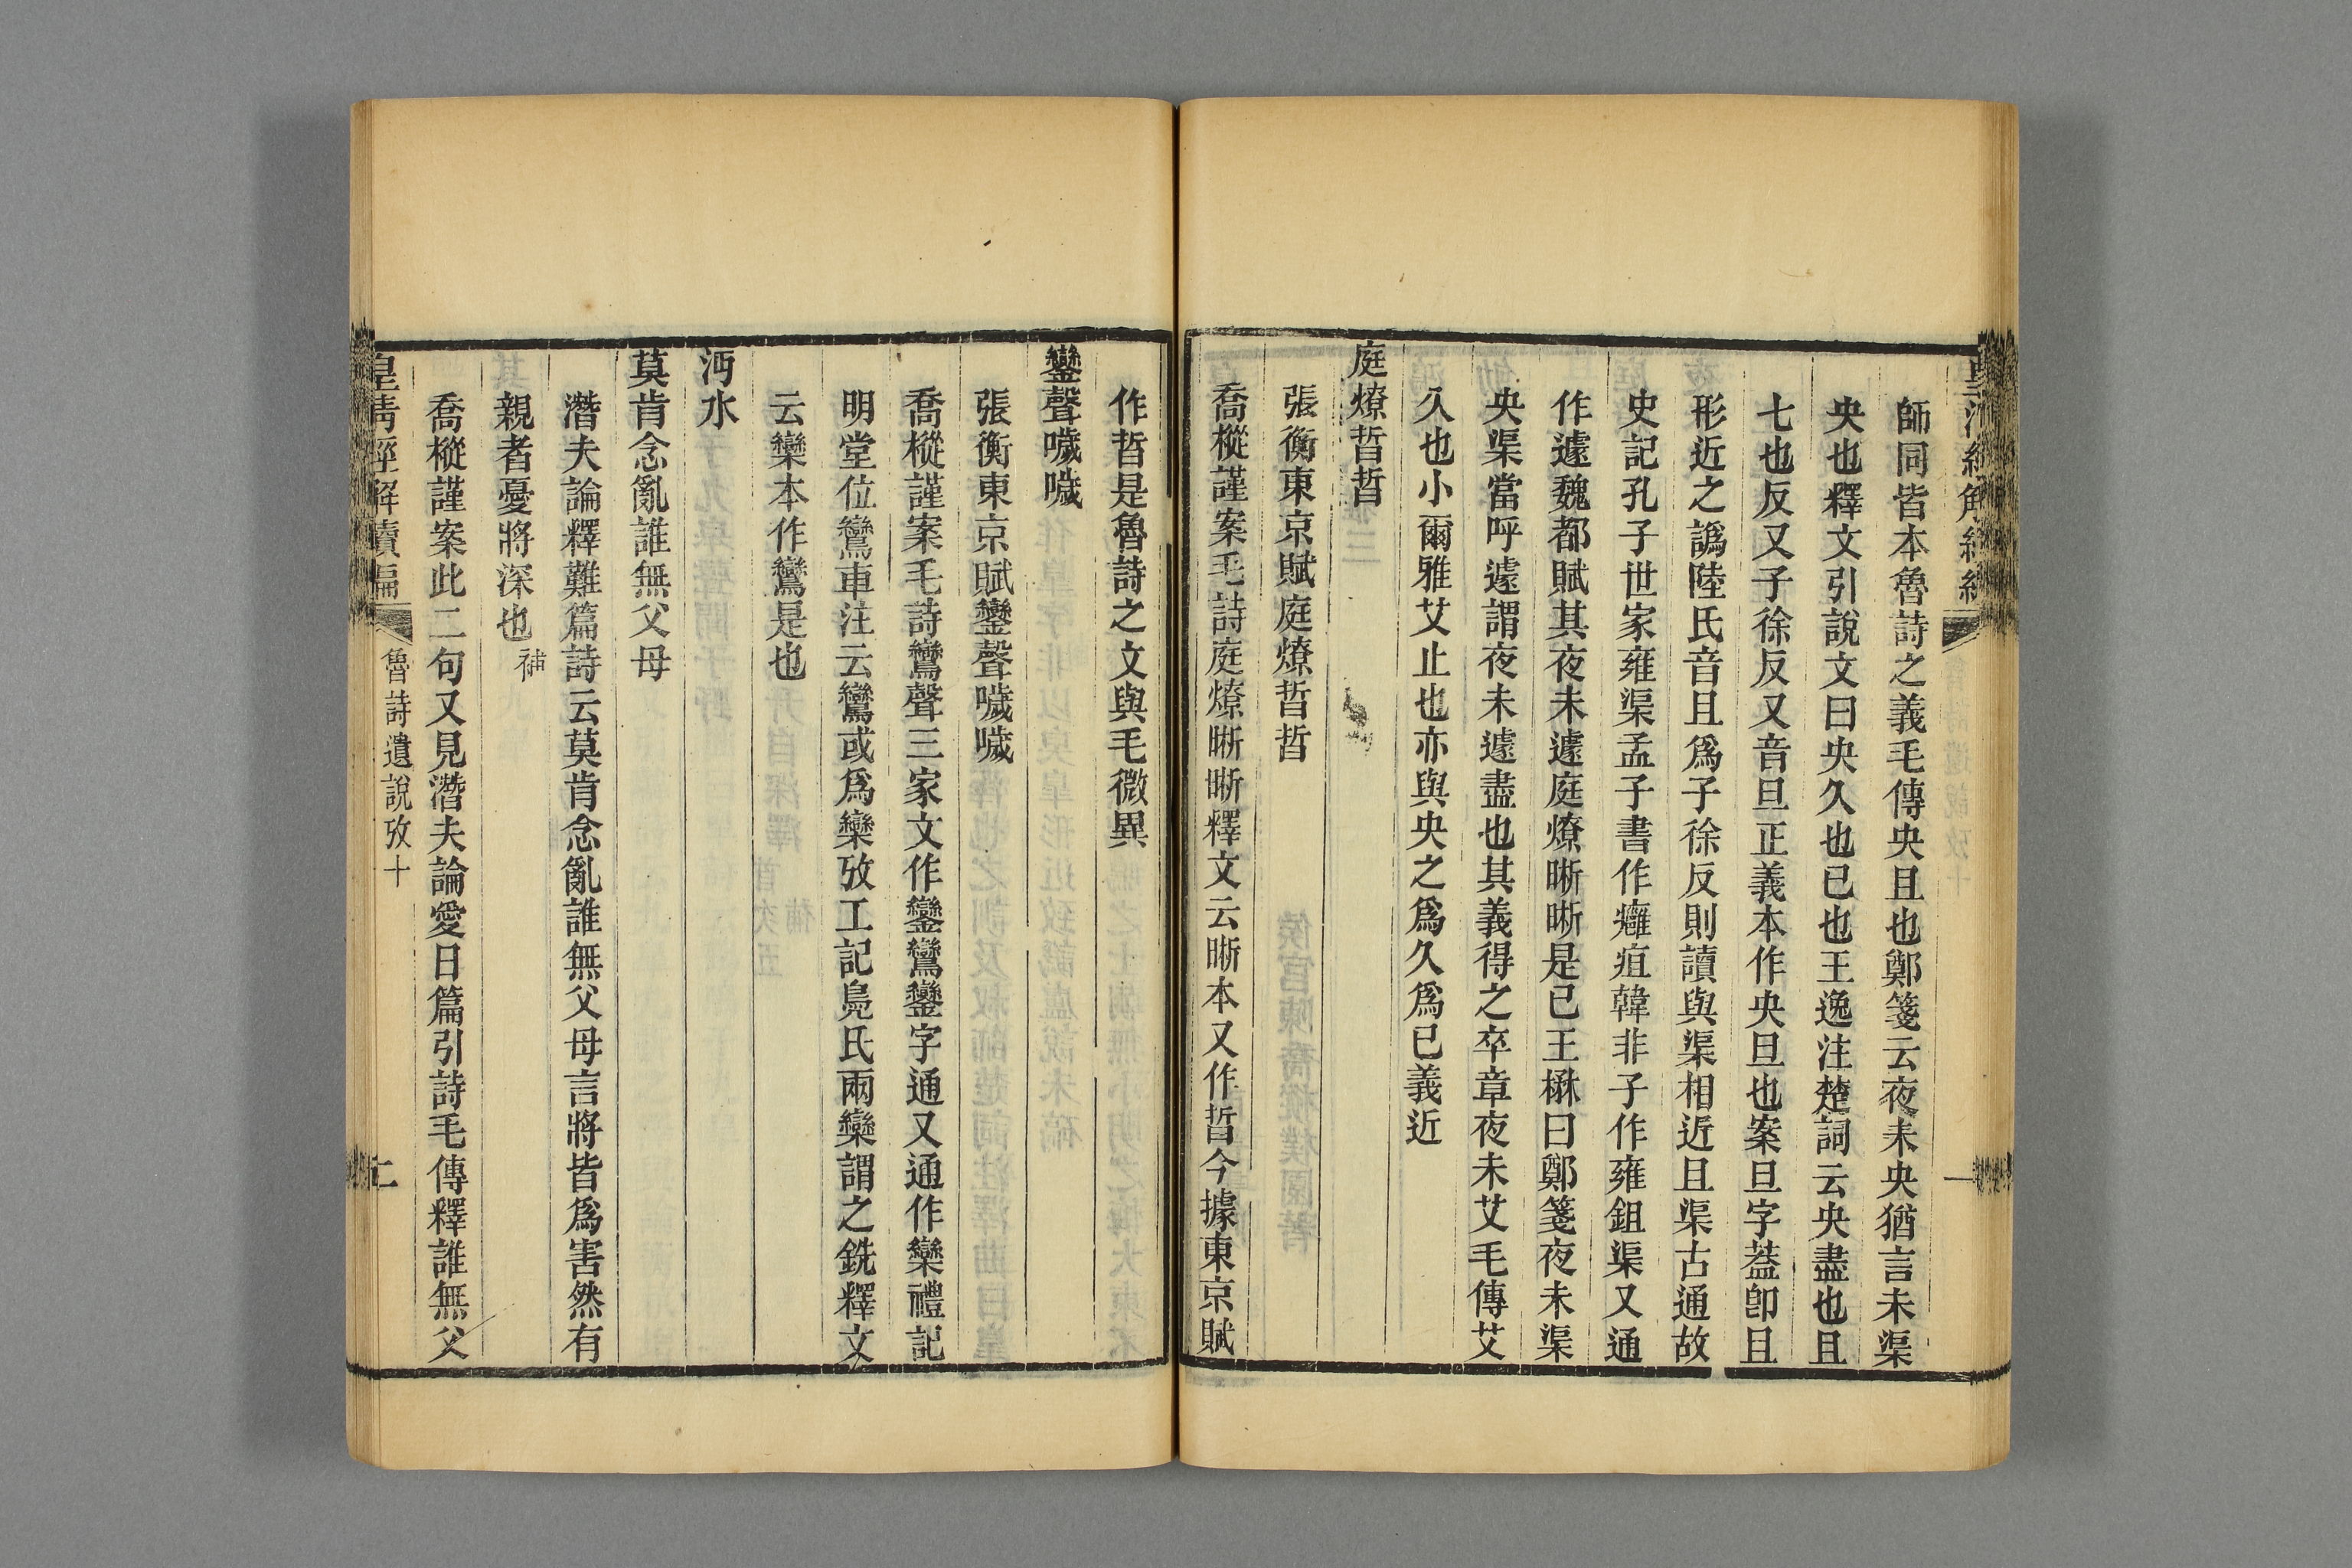 師同皆本魯詩之義毛傳央且也鄭箋云夜未央猶言未渠
央也釋文引說文曰央久也已也王逸注楚詞云央盡也且
七也反又子徐反又音旦正義本作央旦也案旦字葢卽且
形近之譌陸氏音且爲子徐反則讀與渠相近且渠古通故
史記孔子世家雍渠孟子書作癰疽韓非子作雍鉏渠又通
作遽魏都賦其夜未遽庭燎晣晣是已王楙曰鄭箋夜未渠
央渠當呼遽謂夜未遽盡也其義得之卒章夜未艾毛傳艾
久也小爾雅艾止也亦與央之爲久爲已義近
庭燎晢晢
張衡東京賦庭燎晢晢
喬樅謹案毛詩庭燎晣晣釋文云晣本又作晢今據東京賦
作晢是魯詩之文與毛微異
鑾聲噦噦
張衡東京賦鑾聲噦噦
喬樅謹案毛詩鸞聲三家文作鑾鸞鑾字通又通作欒禮記
明堂位鸞車注云鸞或爲欒攷工記鳧氏兩欒謂之銑釋文
云欒本作鸞是也
沔水
莫肯念亂誰無父母
潛夫論釋難篇詩云莫肯念亂誰無父母言將皆爲害然有
親者憂將深也補
喬樅謹案此二句又見潛夫論愛日篇引詩毛傳釋誰無父
皇清經解續編
魯詩遺說攷十